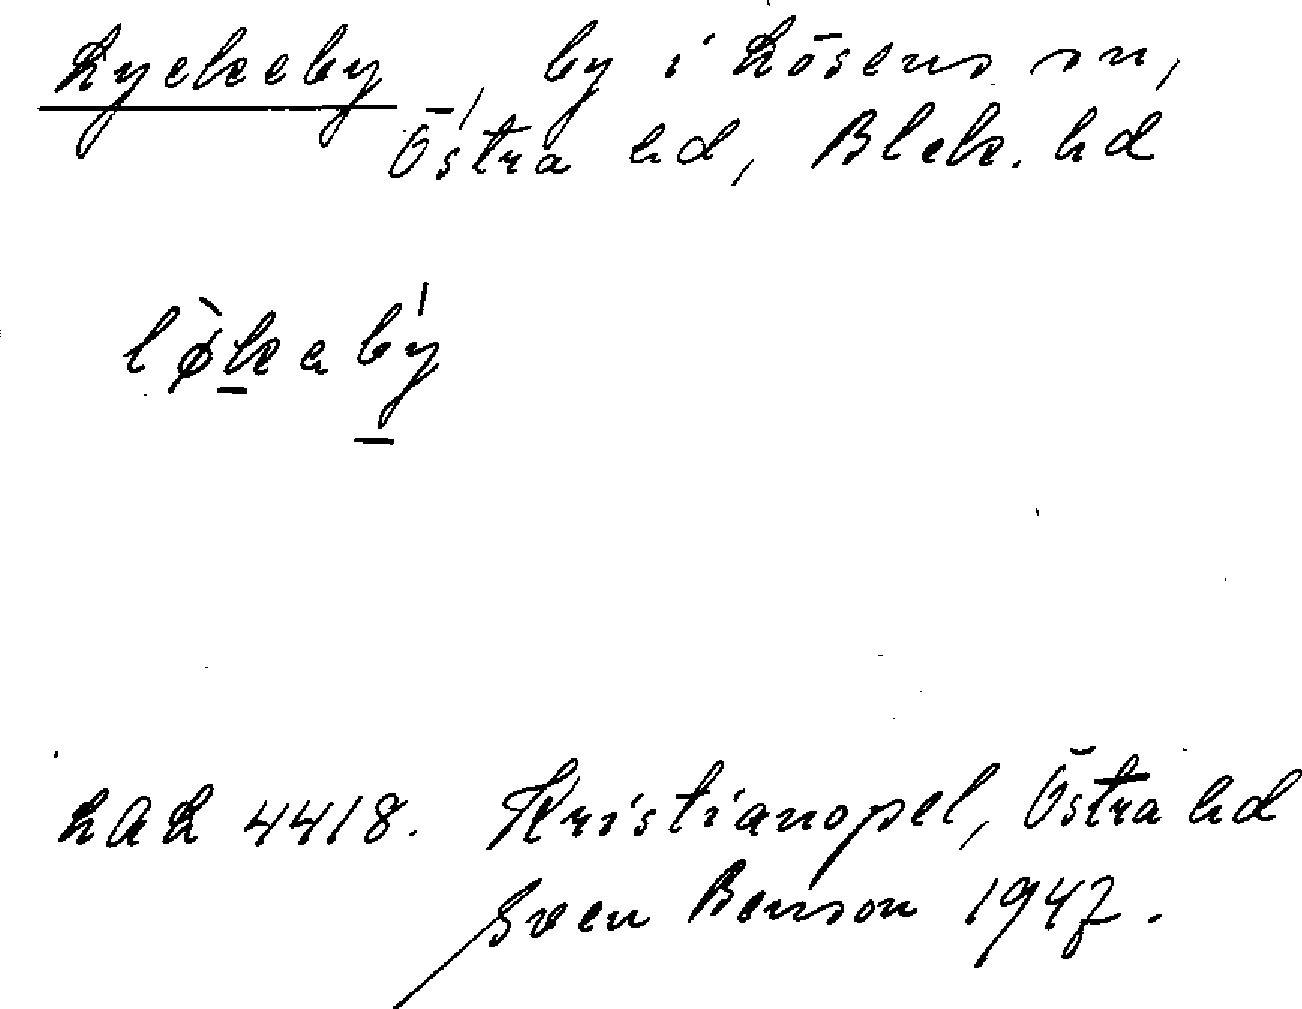 Lyckeby, by i Lösens sn,
Östra hd, Blek. hd
lø̀kabý
LAL 4418. Kristianopel, Östra hd
Sven Benson 1947.